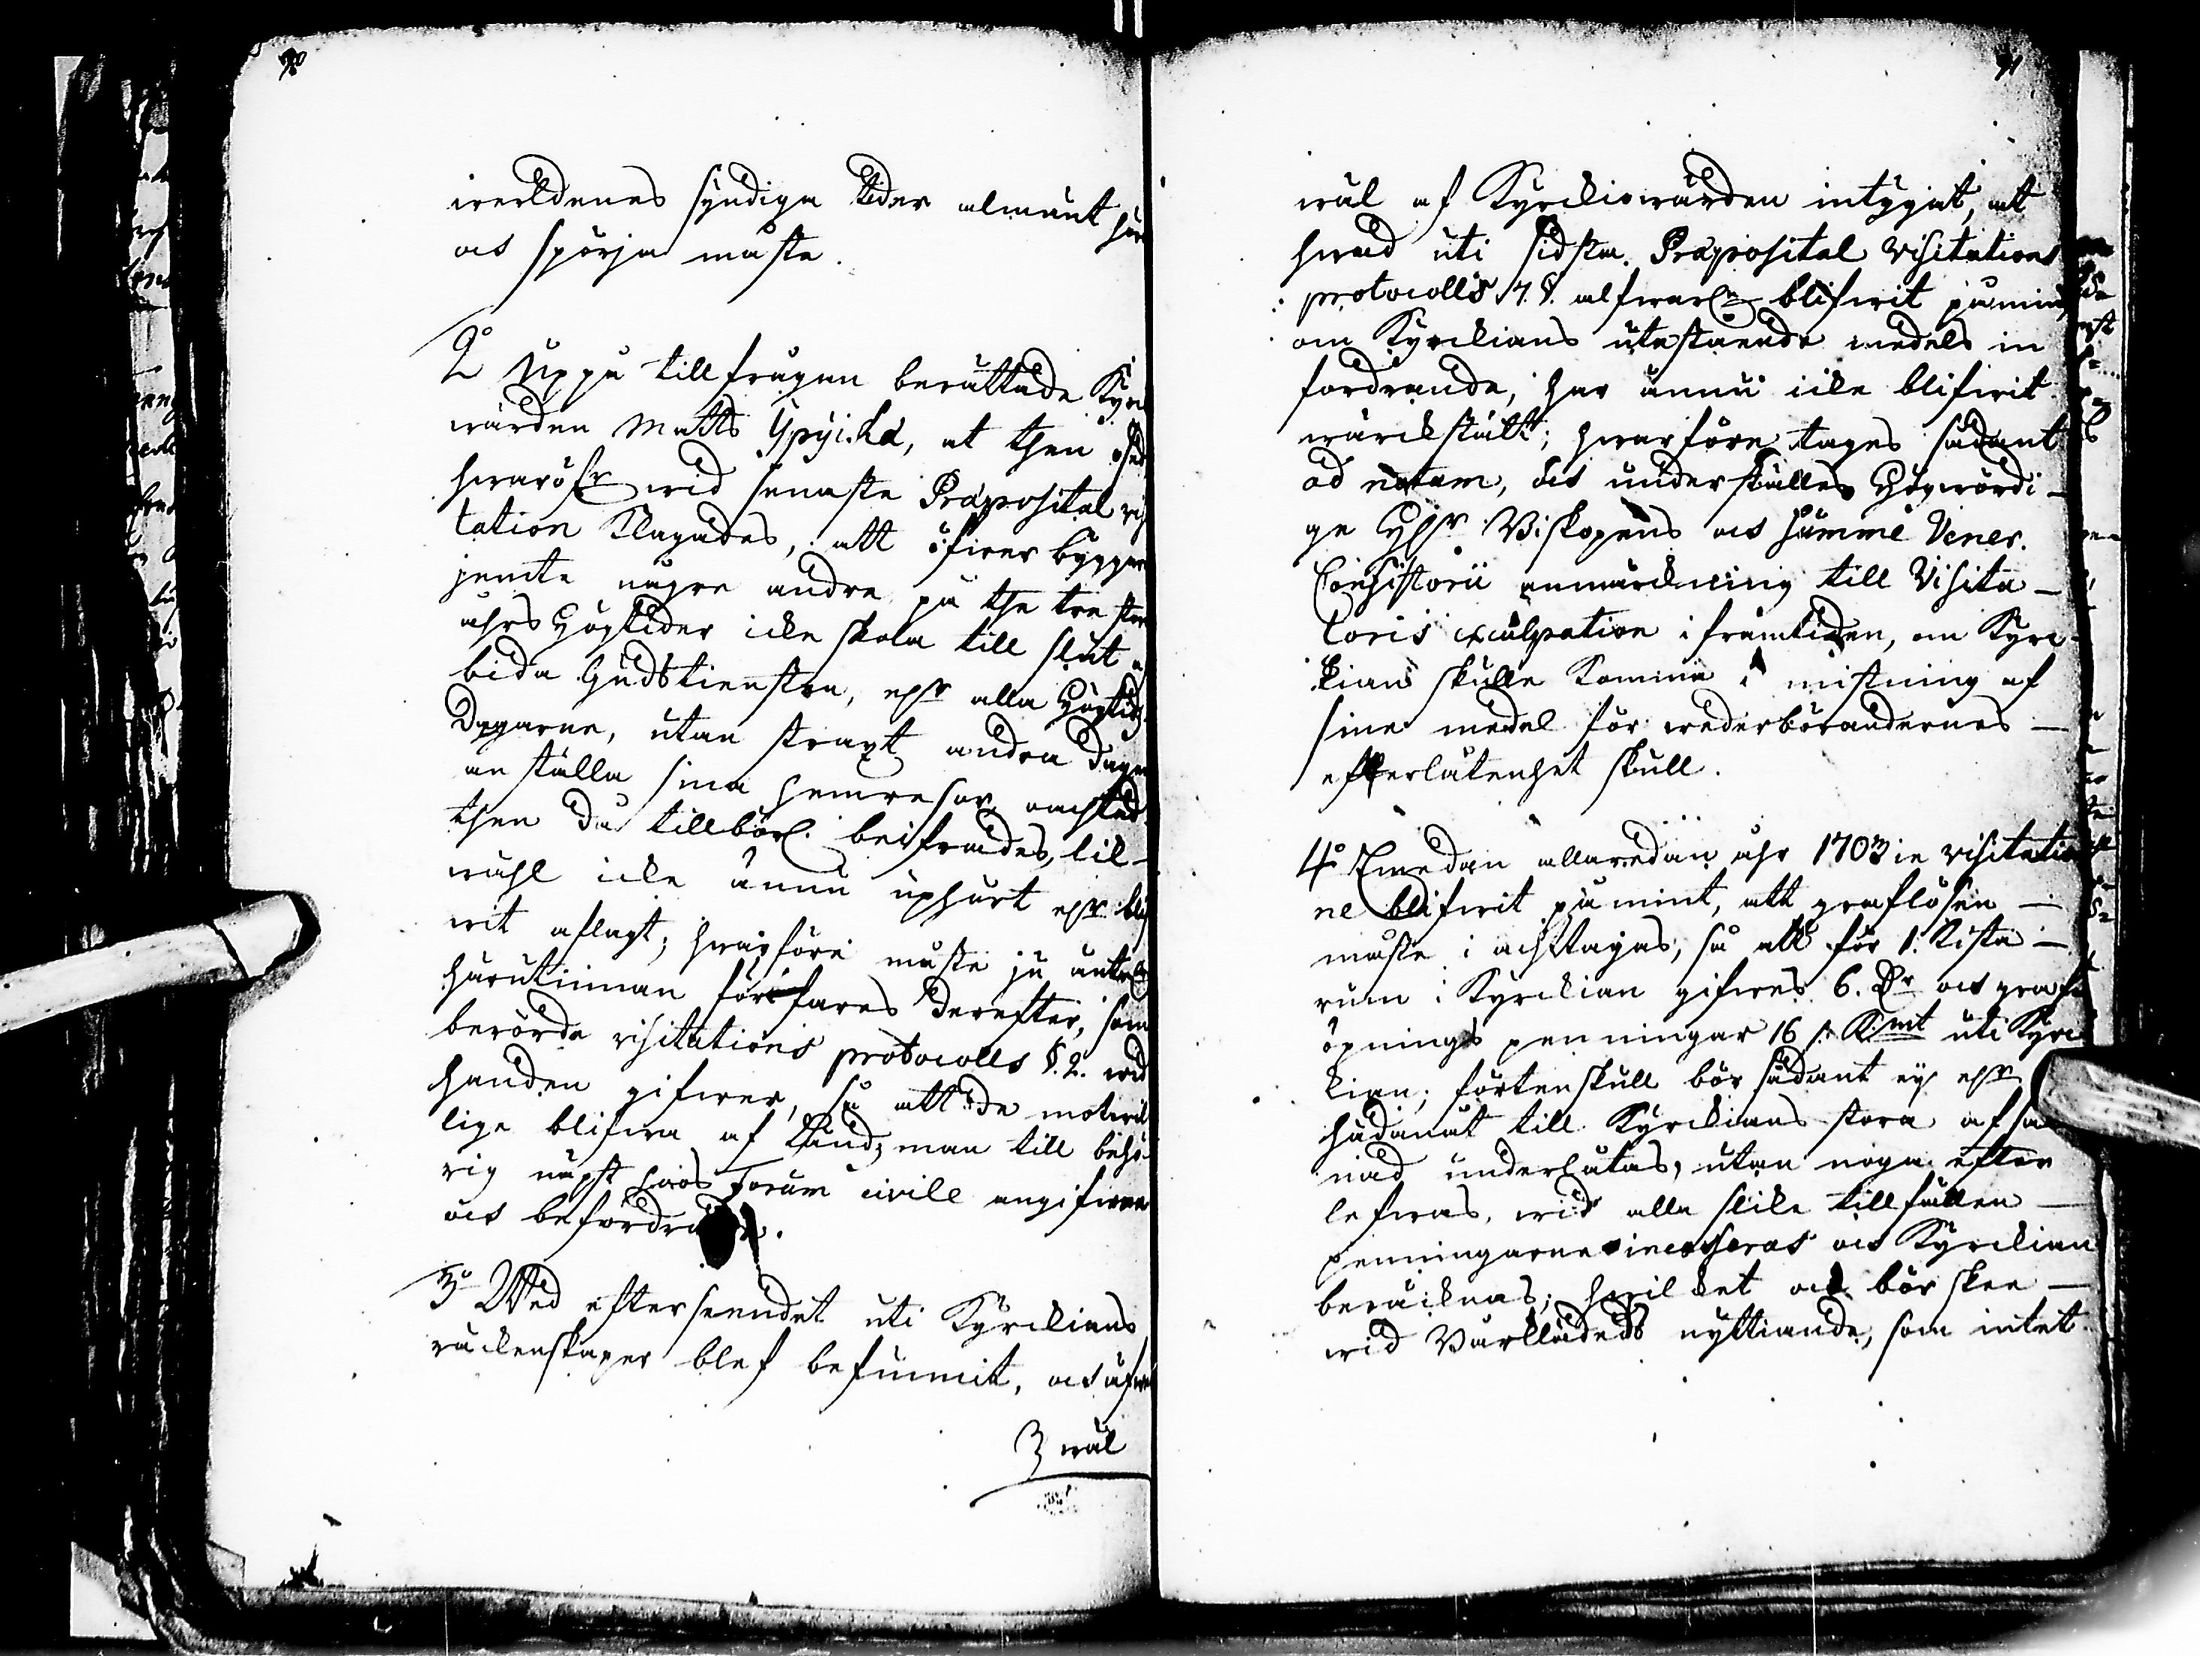 70
werldenes syndiga tider almänt hör
as spörja måste.
2:o Uppå tillfrågan berättade Kyrc
wärden Matts Ypyickä, at then osed
hwaröfr wid senaste Præposital visi
tation klagades, att öfwer byggar
jemte några andra på the tre stor
ahrs Högtider icke skola till slut a
bida Gudstiensten, eller alla Högtids
Dagarne, utan straxt andra Dagen
an ställa sina hemresor oachtadt
then då tillbörl. beifrades, lik
wähl icke ännu uphört eller blif
wit aflagt; hwarföre måste ju
härutinnan förfares derefter, som
berörde visitations protocolls §. 2. wid
handen gifwer, så att de motwil
lige blifwa af Länds man till behö
rig näpst hos Forum civile angifwne
och befordrade.
3:o Wed efterseendet uti Kyrckians
räckenskaper blef befunnit, och äfwen
wäl
71
wäl af Kyrckiowärden intygat, at
hwad uti sidsta Præposital Visitations
protocolls 7. §. alfwarl. blifwit påmint
om Kyrckians utestående medels in
fordrande, har ännu icke blifwit
wärckstält; hwarföre tages sådant
ad notam, och underställes Högwördi-
ge Hr Biskopens och samme Vener.
Consistorii anmärckning till Visita-
toris exculpation i framtiden, om Kyrc-
kian skulle komma i mistning af
sine medel för wederbörandernes
efterlåtenhet skull.
4:o Emedan allaredan åhr 1703 in visitatio
ne blifwit påmint, att graflösen
måste i acht tagas, så att för 1. Kista-
rum i Kyrckian gifwes 6. Dr och graf
öpnings penningar 16 s. Kmt uti Kyrc
kian; förtenskull bör sådant ey eller
hädanåt till Kyrckians stora afsak
nad underlåtas, utan noga efter
lefwas, wid alla slike tillfällen
penningarne incasseras och Kyrckian
beräcknas; hwilcket ock bör skee
wid Bårklädets nyttiande, som intet